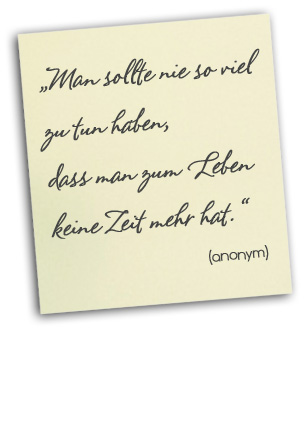 „Man sollte nie so viel
zu tun haben,
dass man zum Leben
keine Zeit mehr hat.“
(anonym)